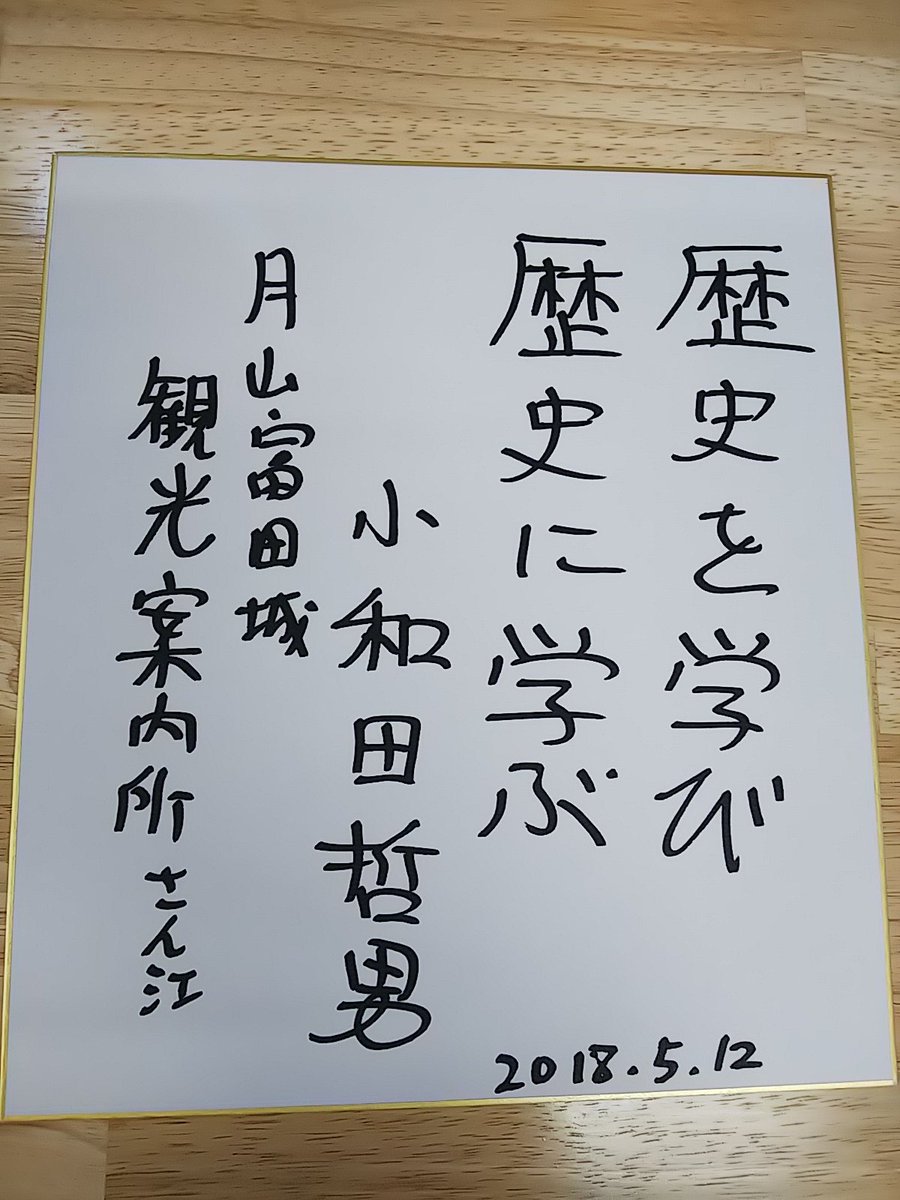 歴史を学び
歴史に学ぶ
小和田哲男
月山富田城
観光案内所さん江
2018.5.12